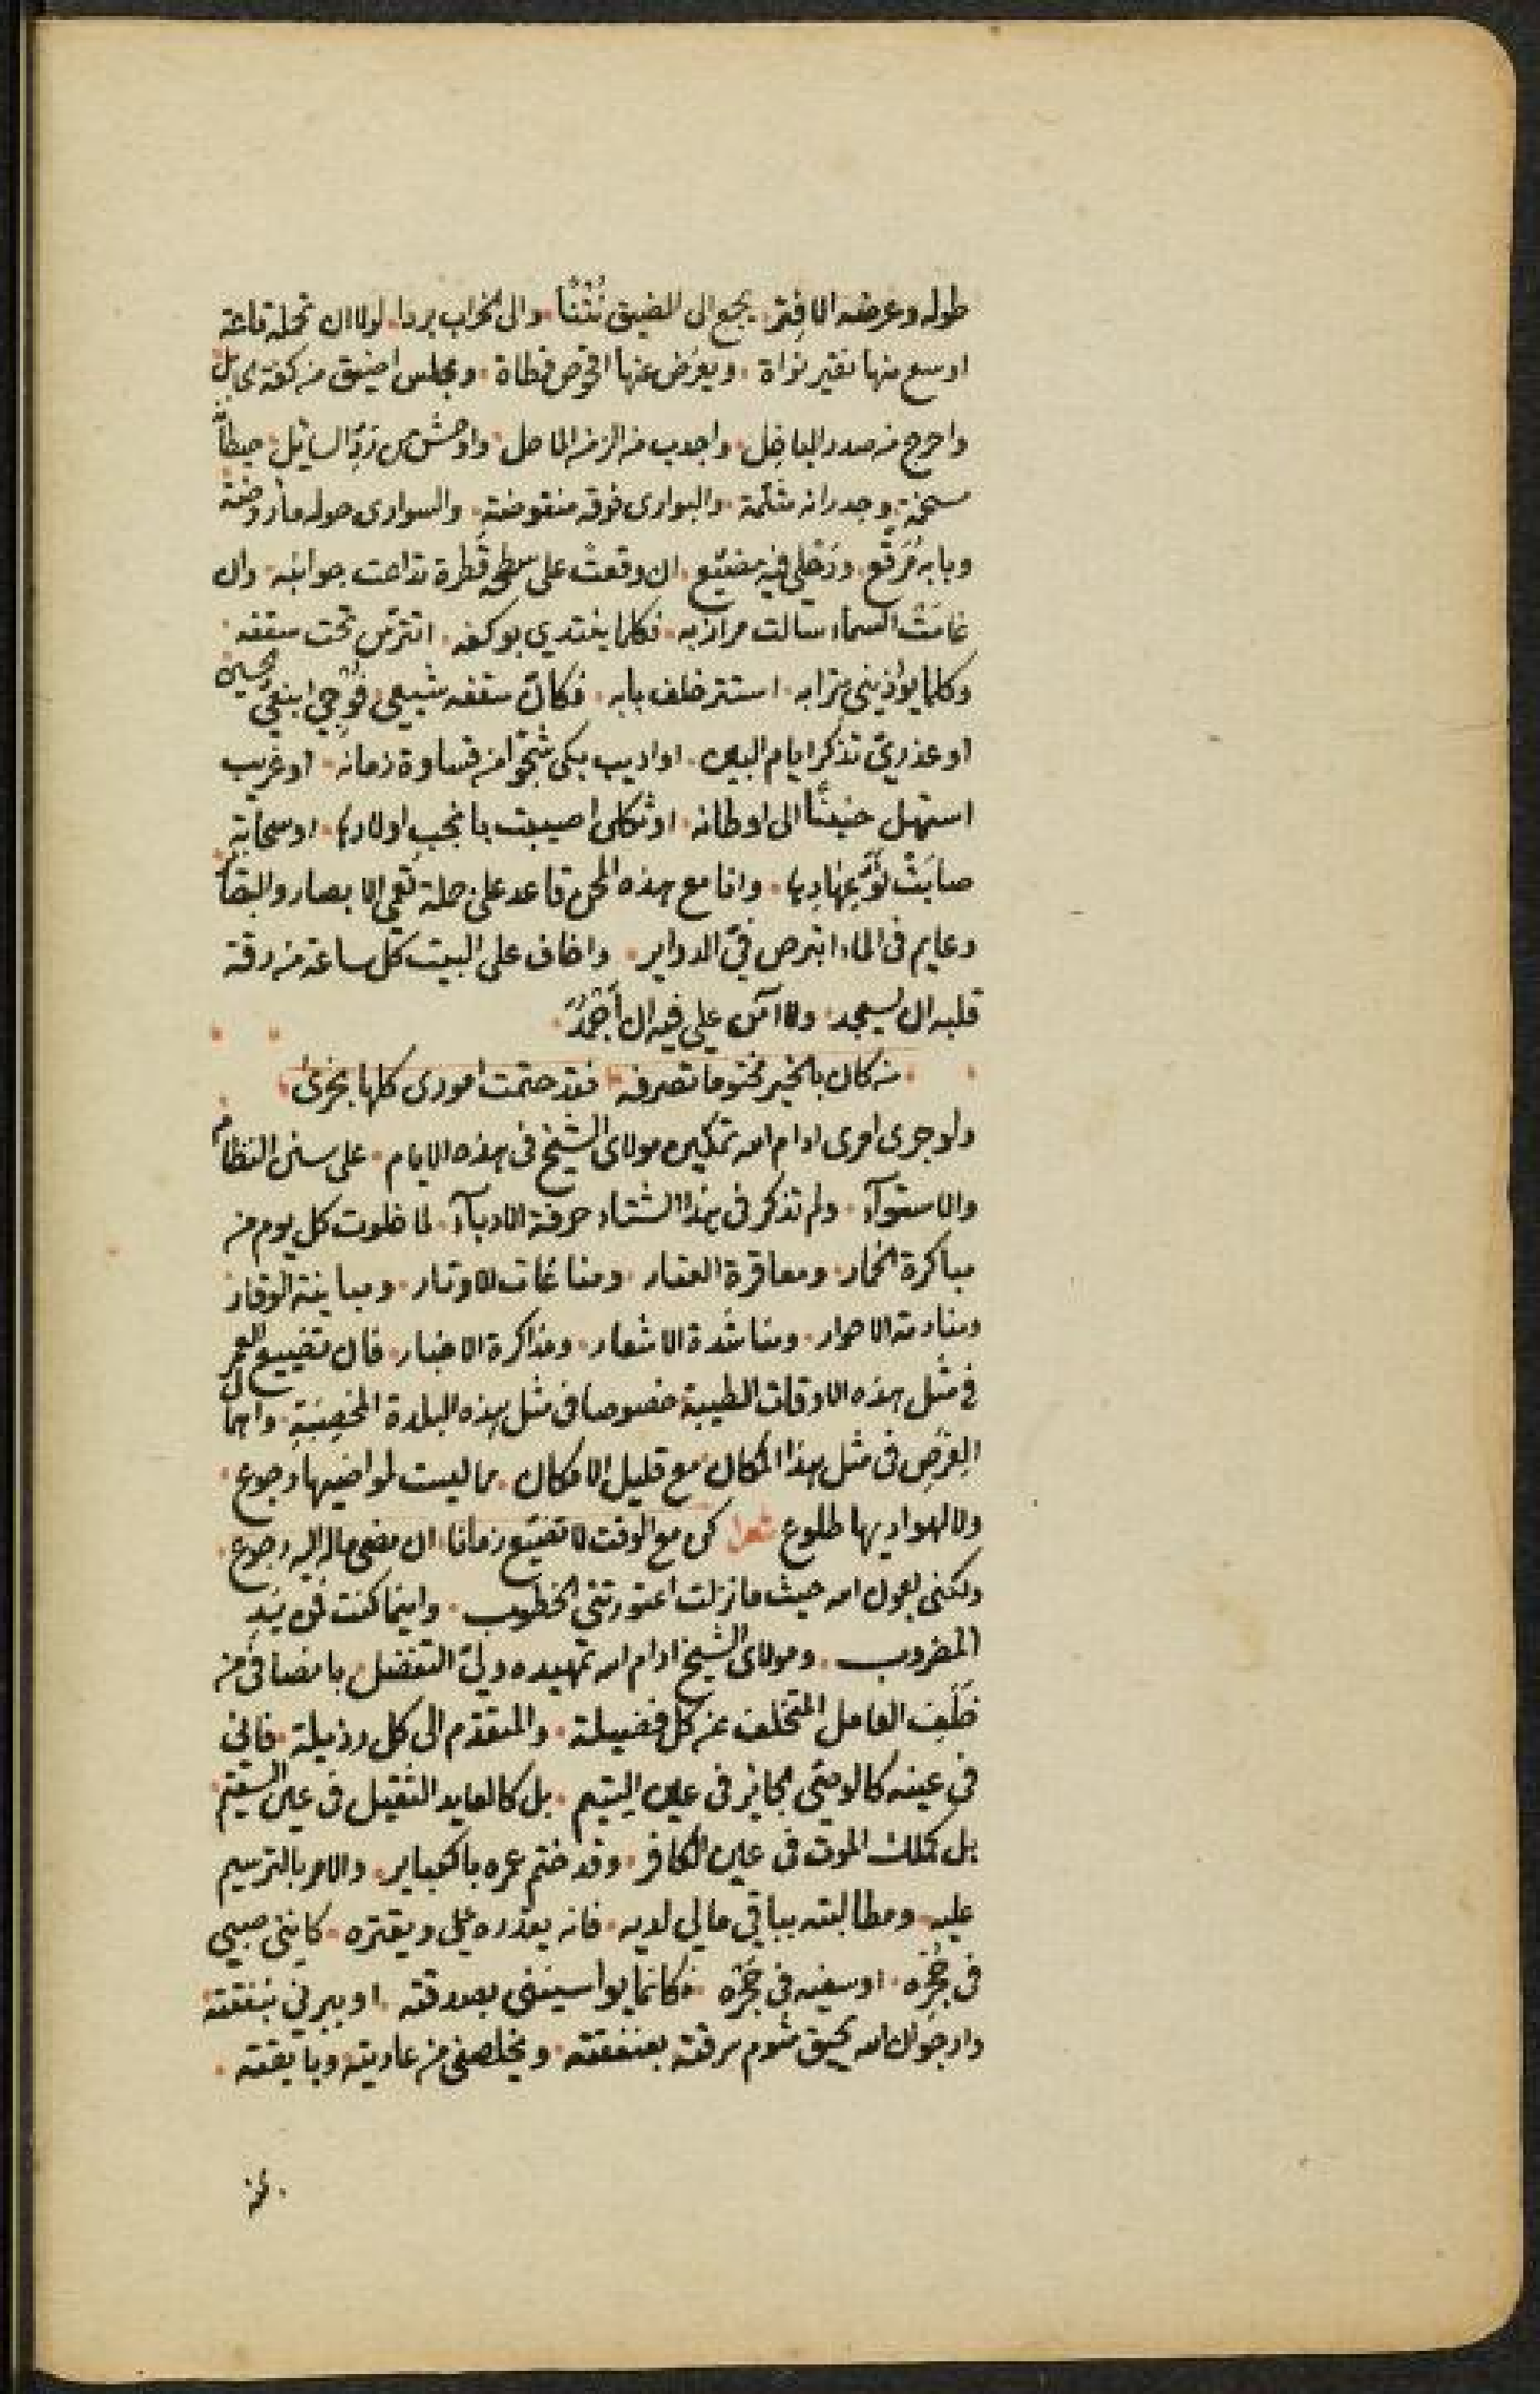 طوله وعرضه الا فِتر. يجمع الى الضيق نُتْنًا. والى الخراب بردا. لولا ان تحله قاعة
اوسع منها نقير نواة. ويعرض عنها افحوص قطاة. ومجلس اضيق من كفة حابل
واحرج من صدر الباخل. واجدب من الزمن الماحل. واوحش من ردّ السايل. حيطانه
سخنة وجدرانه مثلّمة. والبوارى فوقه منقوضة. والسوارى حوله مأروضة
وبابه مُرقّع. ودَخلي فيه مضيّع. ان وقعت على سطحه قطرة تداعت جوانبه. وان
غامَتْ السماء سالت مرازبه. فكلما يغتدي بوكفه. انترّس تحت سقفه.
وكلما يؤذيني بترابه. استتر خلف بابه. فكانّ سقفه شيعي فُوجئ بنعيّ الحسين
او عذريّ تذكر ايام البين. او اديب بكى شجوا من قساوة زمانه. او غريب
استهل حنينًا الى اوطانه. او ثكلى اصيبت بانجب اولادها. او سحابة
صابَتْ نوّ عِهادِها. وانا مع هذه المحن قاعد على حلة تعمي الابصار والبصاير
وعايم فى الماء اتبرص فى الدواير. واخاف على البيت كل ساعة من رقة
قلبه ان يسجد. ولا آمن علي فيه ان أخمدَ.
من كان بالخير مختوما تصرفه فقد ختمت امورى كلها بخرى
ولو جرى امرى ادام الله تمكين مولاى الشيخ فى هذه الايام. على سنن النظام
والاستوآء. ولم تذكر فى هذا الشتاء حرفة الادبآء. لما خلوت كل يوم من
مباكرة الخمار. ومعاقرة العقار. ومناغات الاوتار. ومباينة الوقار
ومنادمة الاحرار. ومناشدة الاشعار. ومذاكرة الاخبار. فان تضييع العمر
في مثل هذه الاوقات الطيبة خصوصا فى مثل هذه البلدة الخصبة. واهمال
الفرص فى مثل هذا المكان مع قليل الامكان. مما ليست لمواضيها رجوع.
ولا لهواديها طلوع شعرا كن مع الوقت لا تضيّع زمانا. ان مضى ماله اليه رجوع.
ولكنى بعون الله حيث ما نزلت اعتورتنى الخطوب. واينما كنت فى يد
المضروب. ومولاى الشيخ ادام الله تمهيده وليّ التفضل بانصافى من
خَلَفِ العامل المتخلف عن كل فضيلة. والمتقدم الى كل رذيلة. فانى
فى عينه كالوصي الجاير فى عين اليتيم. بل كالعايد الثقيل فى عين السقيم
بل كملك الموت فى عين الكافر. وقد ختم عمره بالكباير. والامر بالترسيم
عليه. ومطالبته بباقي مالي لديه. فانه يقدره علي ويقتره. كاننى صبي
فى حُجره. او سفيه فى حَجْره. فكانما يواسينى بصدقته. او يبرنى بنفقته
وارجو ان الله يحيق شوم سرقته بعنفقته. ويخلصنى من عاديته وبايقته.